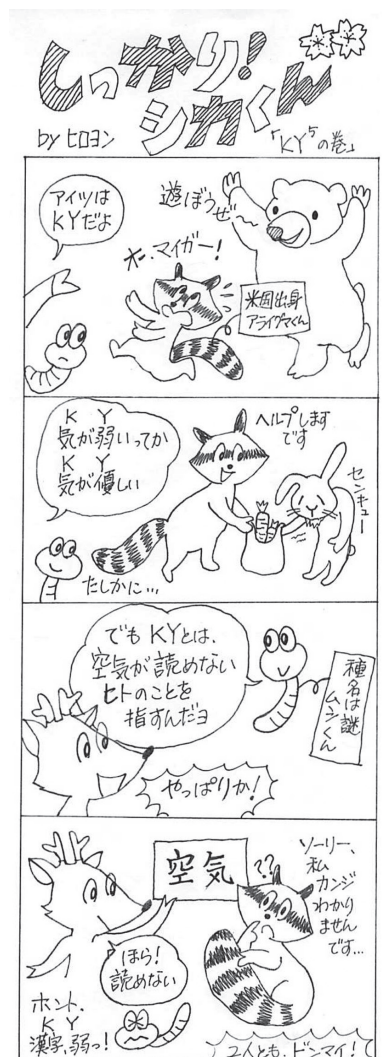 しっかり!
シカくん
by ヒロヨン
「KY」の巻
アイツは
KYだよ
遊ぼうぜ〜
オー、マイガー!
米国出身
アライグマくん
K Y
気が弱いってか
K Y
気が優しい
ヘルプします
です
センキュー
たしかに…
でもKYとは、
空気が読めない
ヒトのことを
指すんだヨ
種名は謎
ムシくん
やっぱりか!
空気
??
ソーリー、
私
カンジ
わかり
ません
です…
ほら!
読めない
ホント、
K Y
漢字、弱っ!
2人とも、ドンマイ!